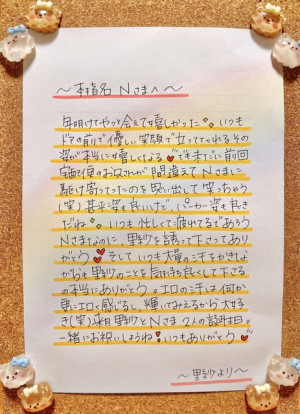 〜本指名 Nさまへ〜
年明けてやっと会えて嬉しかった いつも
ドアの前で優しい笑顔で立っててくれるその
姿が本当に嬉しくなる でもまたに前回
宅配便のお兄さんが間違えてNさまに
駆け寄ってったのを思い出して笑っちゃう
(笑) 甚平姿も良いけど、パーカー姿も良き
だね いつも忙しくて疲れてるであろう
Nさまなのに、里紗を誘って下さってあり
がとう そしていつも大量の汗をかきしな
がらも里紗のことを気持ち良くして下さる
の本当にありがとう。エロの汗は何か
更にエロく感じるし、輝いてみえるから大好
き(笑)来月里紗とNさま2人の誕生日
一緒にお祝いしようね!いつもありがとう
〜里紗より〜